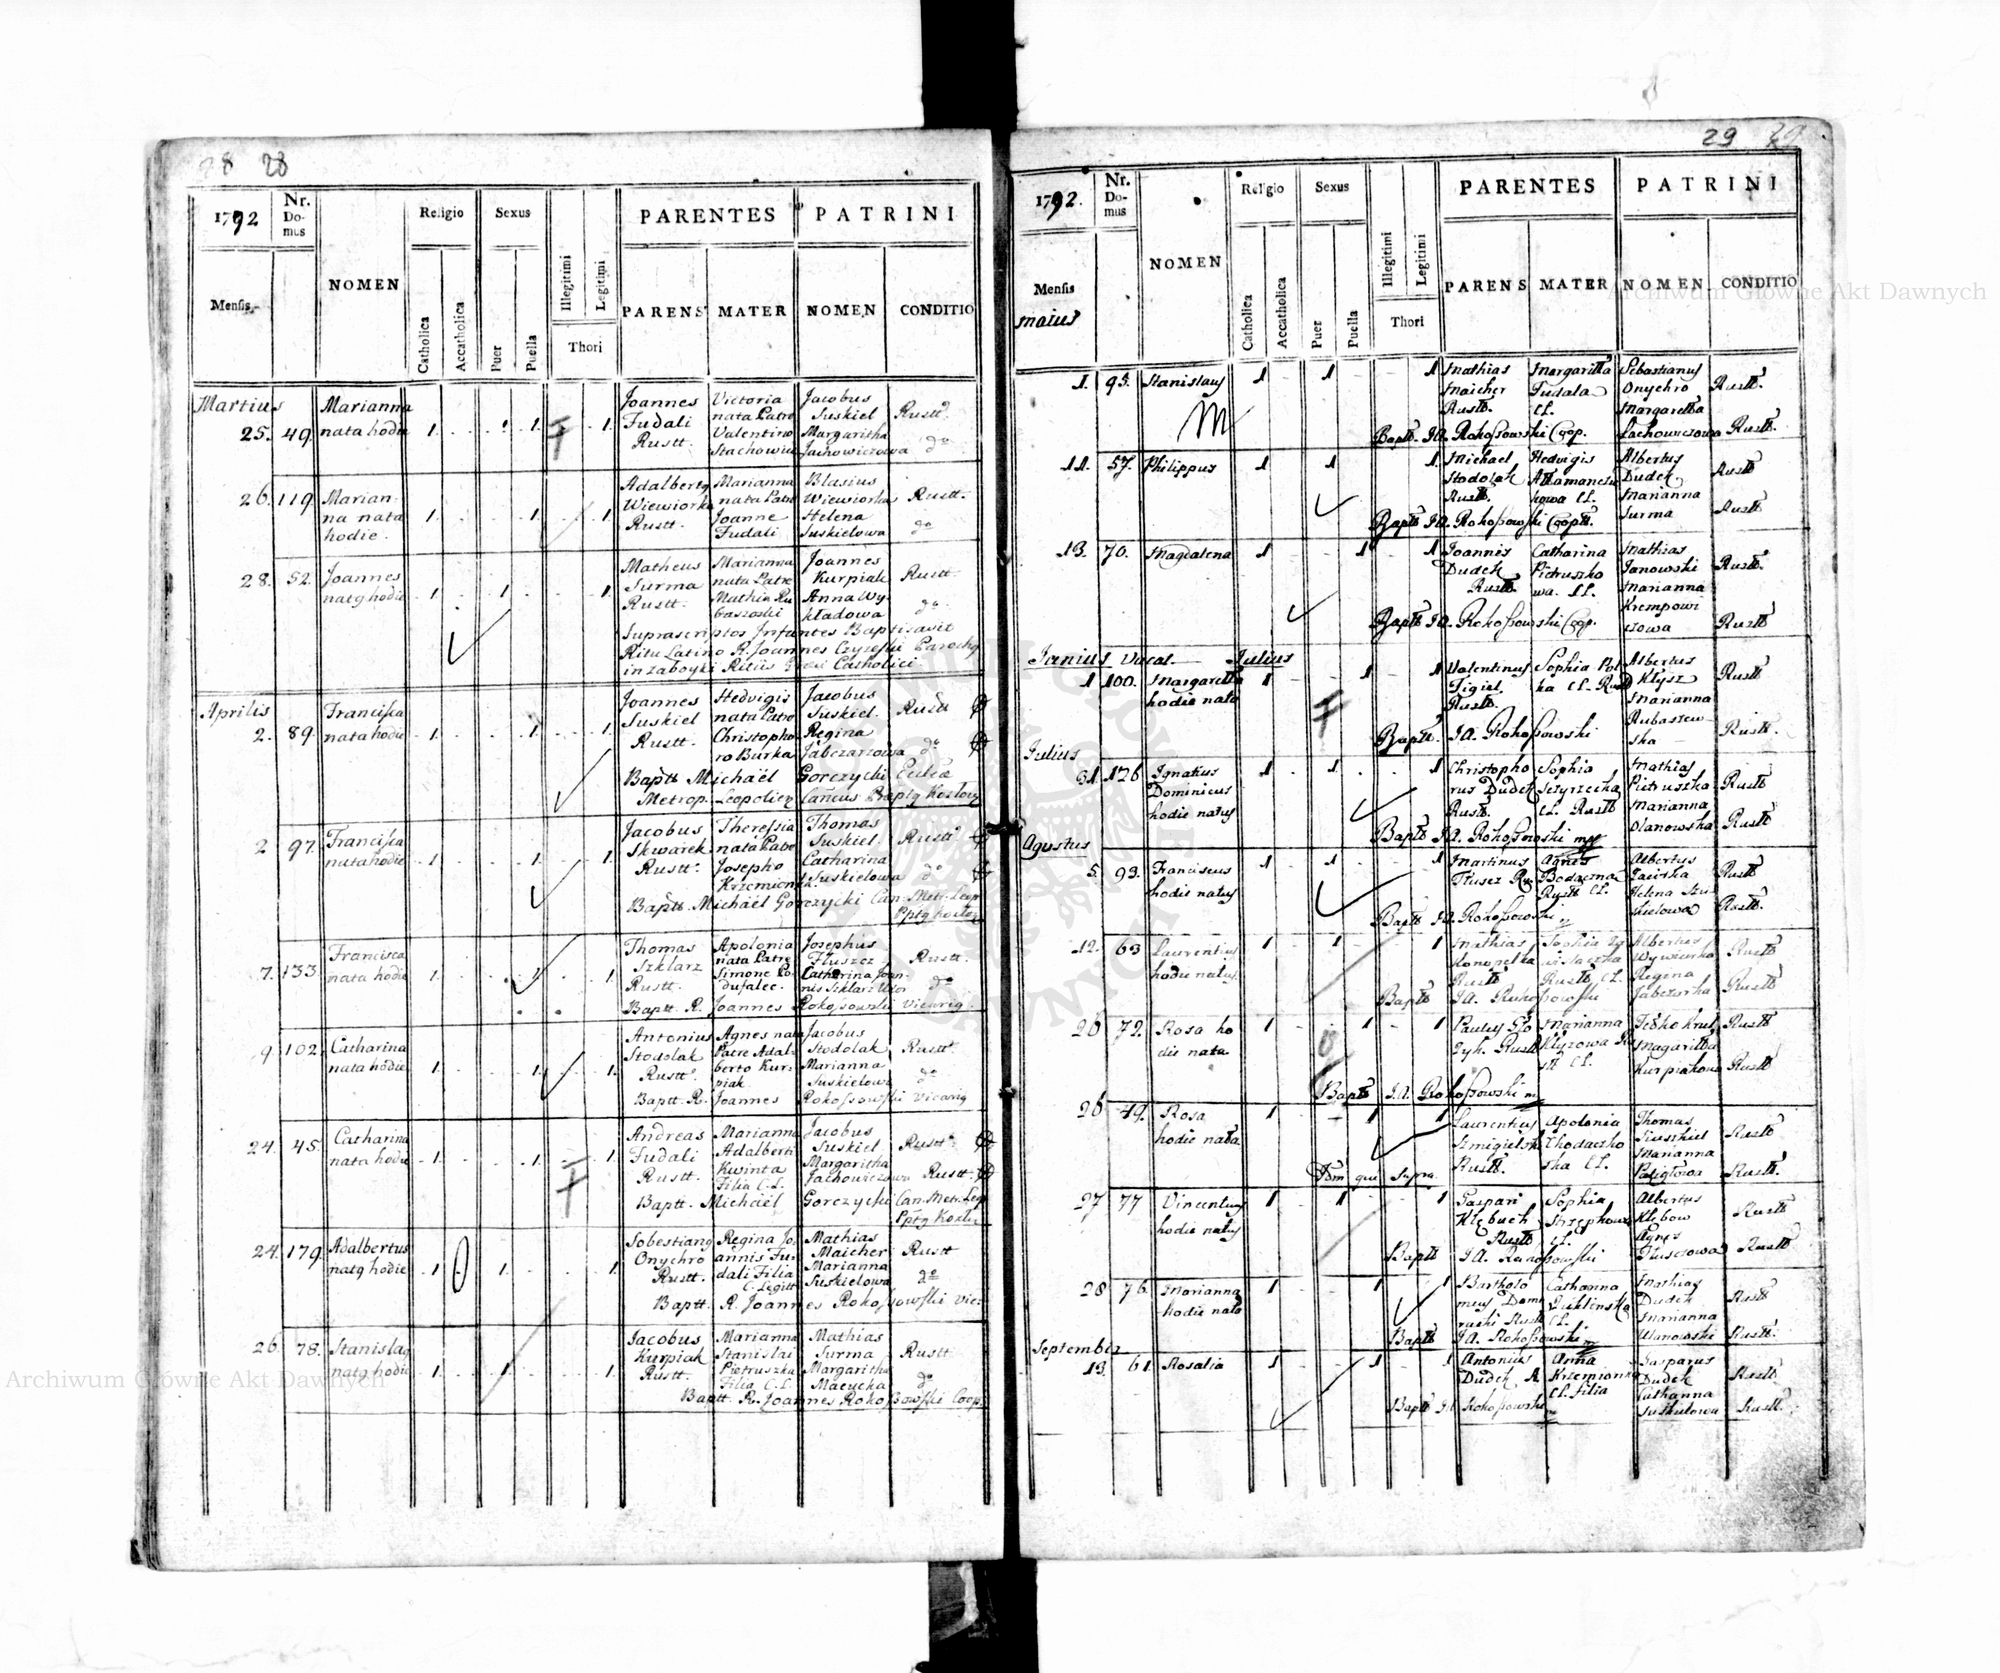 28 28
1792
Nr. Domus
NOMEN
Religio
Sexus
PARENTES
PATRINI
Mensis
Catholica
Accatholica
Puer
Puella
Illegitimi
Legitimi
Thori
PARENS
MATER
NOMEN
CONDITIO
Martius
25. 49. Marianna nata hodie 1. 1. 1.
Joannes Fudali Rustt.
Victoria nata Patre Valentino Stachowi
Jacobus Suskiel Rustt.
Margaritha Jachowiczowa do
26. 119. Marianna nata hodie. 1. 1. 1.
Adalbertq Wiewiorka Rustt.
Marianna nata Patre Joanne Fudali
Blasius Wiewiorka Rustt.
Helena Suskielowa do
28. 52. Joannes natq hodie 1. 1. 1.
Matheus Surma Rustt.
Marianna nata Patre Mathia Rubaszeski
Joannes Kurpiak Rustt.
Anna Wykładowa do
Suprascriptos Infantes Baptisavit
Ritu Latino R. Joannes Czyreski Parochq
in zaboyki Ritus Graci Catholici
Aprilis
2. 89. Francisca nata hodie 1. 1. 1.
Joannes Suskiel Rustt.
Hedvigis nata Patre Christophoro Burka
Jacobus Suskiel Rustt
Regina Jabczarzowa do
Baptt Michaël Gorczycki Eccl[a]
Metrop. Leopolien Cancus Pptq Kozlow
2 97. Francisca nata hodie 1. 1. 1.
Jacobus Skwarek Rustt.
Theressia nata Patre Josepho Krzemionka.
Thomas Suskiel Rustt
Catharina Suskielowa do
Baptt. Michaël Gorczycki Can. Metr. Leop
Pptq Kozlow
7. 133. Francisca nata hodie 1. 1. 1.
Thomas Szklarz Rustt.
Apolonia nata Patre Simone Podufalec.
Josephus Tłuszcz Rustt.
Catharina Joannis Szklarz Uxor do
Baptt. R. Joannes Rokosowski Vicariq
9. 102. Catharina nata hodie 1. 1. 1.
Antonius Stodolak Rustt.
Agnes nata Patre Adalberto Kurpiak
Jacobus Stodolak Rustt.
Marianna Suskielowa do
Baptt. R. Joannes Rokossowski Vicarq
24. 45. Catharina nata hodie 1. 1. 1.
Andreas Fudali Rustt.
Marianna Adalberti Kwinta Filia C. L.
Jacobus Suskiel Rustt.
Margaritha Jachowiczowa Rustt.
Baptt. Michaël Gorczycki Can. Metr. Leop
Pptq Kozl.
24. 179. Adalbertus natq hodie 1. 1. 1.
Sobestianq Onychro Rustt.
Regina Joannis Fudali Filia C. Legitt
Mathias Maicher Rustt
Marianna Suskielowa do
Baptt. R. Joannes Rokossowski Vic:
26. 78. Stanislaq natq hodie 1. 1. 1.
Jacobus Kurpiak Rustt.
Marianna Stanislai Pietruszka Filia C. L.
Mathias Surma Rustt
Margaritha Macucka do
Baptt. R. Joannes Rokossowski Coop.
29
1792.
Nr. Domus
NOMEN
Religio
Sexus
PARENTES
PATRINI
Mensis
Maius
Catholica
Accatholica
Puer
Puella
Illegitimi
Legitimi
Thori
PARENS
MATER
NOMEN
CONDITIO
1. 95. Stanislaus 1 1 1
Mathias Maicher Rustt.
Margaritta Fudala C L.
Sebastianus Onychro Rustt.
Margaretta Lachowiczowa Rustt.
Baptt. J A. Rokossowski Coop.
11. 57. Philippus 1 1 1.
Michael Stodolak Rustt.
Hedvigis
Albertus Dudek Rustt
Marianna Surma Rustt
Baptt J A. Rokossowski Coopt.
13. 70. Magdalena 1 1 1
Joannes Dudek Rustt.
Catharina Pietruszkowa. C L.
Mathias Janowski Rustt.
Marianna Krempowiczowa Rustt
Baptt J A. Rokossowski Coop.
Junius Vacat. Julius
1 100. Margaretta hodie nata 1 1 1
Valentinus Figiel Rustt.
Sophia Polka C L. Rustt
Albertus Kłysz Rustt
Marianna Rubaszewska Rustt.
Baptt. J A. Rokossowski
Julius
31. 126. Ignatius Dominicus hodie natus 1 1 1
Christophorus Dudek Rustt.
Sophia C L. Rustt
Mathias Pietruszka Rustt
Marianna Olanowska Rustt
Baptt J A. Rokossowski
Agustus
5. 93. Franciscus hodie natus 1 1 1
Martinus Tłuscz Ru.
Agnes Bodaczna Rustt C L.
Albertus Rustt
Helena Suskielowa Rustt.
Baptt J A. Rokossowski
12. 63 Laurentius hodie natus. 1 1 1
Mathias Konopelka Rustt
Sophia Rustt C L.
Albertus Wywiorka Rustt
Regina Jabczorka Rustt
Baptt J A. Rokossowski
26 72. Rosa hodie nata 1 1 1
Paulus Rustt
Marianna Kłyszowa Rustt C L.
Rustt
Magaritta Kurpiakowa Rustt
Baptt J. A. Rokossowski
26 49. Rosa hodie nata. 1 1 1
Laurentius Rustt.
Apolonia C L.
Thomas Suszkiel Rustt
Marianna Rustt.
Idem qui supra.
27 77 Vincentus hodie natus 1 1 1
Gaspari Klębuch Rustt
Sophia C L.
Albertus Klębow Rustt
Agnes Tłusczowa Rustt
Baptt J A. Rokossowski
28 76. Marianna hodie nata 1 1 1
Bartholomeus Rustt
Catharina C L.
Mathias Dudek Rustt
Marianna Rustt.
Baptt J A. Rokossowski
Septembris
13. 61. Rosalia 1 1 1
Antonius Dudek
Anna Krzemionka C L. filia
Gasparus Dudek Rustt
Catharina Suskielowa Rustt.
Baptt J A Rokossowski
Archiwum Główne Akt Dawnych
Archiwum Główne Akt Dawnych